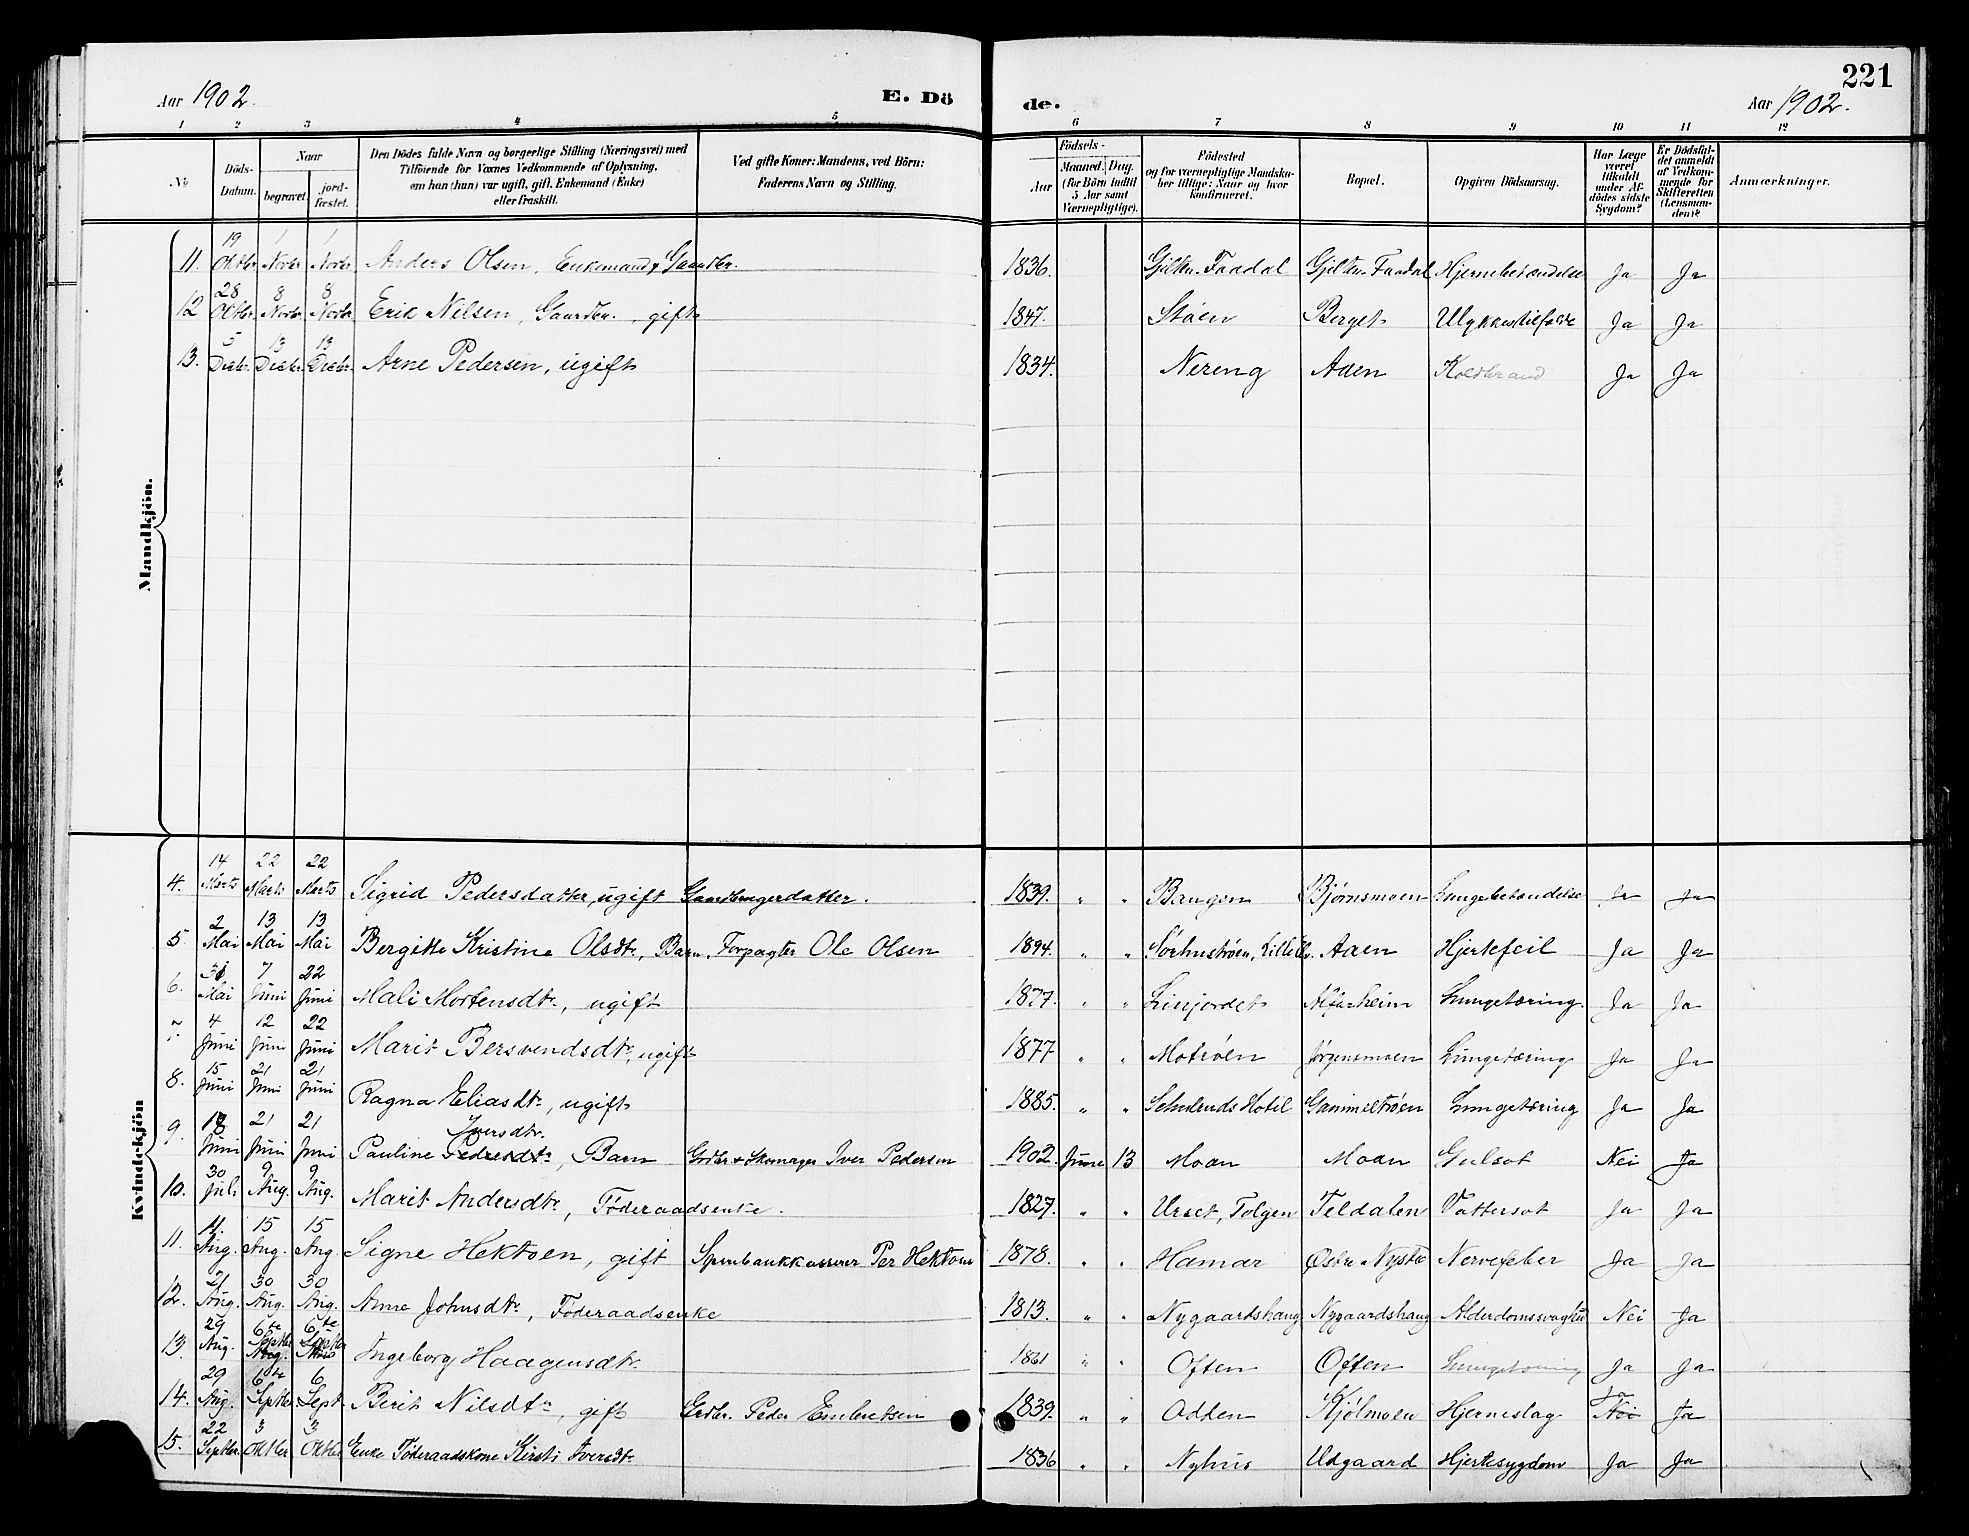 221
Aar 1902.
E. Dö
de.
Aar 1902.
1 2 3 4 5 6 7 8 9 10 11 12
No
Döds-Datum.
Naar
begravet.
jord-fæstet.
Den Dödes fulde Navn og borgerlige Stilling (Næringsvei) med
Tilföiende for Voxnes Vedkommende af Oplysning,
om han (hun) var ugift, gift, Enkemand (Enke)
eller fraskilt.
Ved gifte Koner: Mandens, ved Börn:
Faderens Navn og Stilling.
Födsels-
Aar
Maaned. Dag.
(for Börn indtil
5 Aar samt
Værnepligtige).
Födested
og for værnepligtige Mandska-
ber tillige: Naar og hvor
konfirmeret.
Bopæl.
Opgiven Dödsaarsag.
Har Læge
været
tilkaldt
under Af-
dödes sidste
Sygdom?
Er Dödsfal-
det anmeldt
af Vedkom-
mende for
Skifteretten
(Lensman-
den)?
Anmærkninger.
Mandkjön.
11. 19 Oktbr. 1 Novbr. 1 Novbr. Anders Olsen, Enkemand, Gaardbr. 1836. Faadal Faadal Hjernebetændelse Ja Ja
12 28 Oktbr. 8 Novbr. 8 Novbr. Erik Nilsen, Gaardbr., gift 1847. Støen Berget Ulykkestilfælde Ja Ja
13. 5 Decbr. 13 Decbr. 13 Decbr. Arne Pedersen, ugift 1834. Nereng Aaen Koldbrand Ja Ja
Kvindekjön
4. 14 Marts 22 Marts 22 Marts Sigrid Pedersdatter, ugift Gaardbrugerdatter. 1839. " " Baugen Bjørnsmoen Lungebetændelse Ja Ja
5. 2 Mai 13 Mai 13 Mai Bergitte Kristine Olsdtr., Barn. Forpagter Ole Olsen 1894. " " Aaen Hjertefeil Ja Ja
6. 31 Mai 7 Juni 22 Juni Mali Mortensdtr., ugift 1877. " " Linjordet Alfarheim Lungetæring. Ja Ja
7. 4 Juni 12 Juni 22 Juni Marit Bersvendsdtr., ugift 1877 " " Motrøen Jørgensmoen Lungetæring Ja Ja
8. 15 Juni 21 Juni 21 Juni Ragna Eliasdtr., ugift 1885. " " Schulruds Hotel Gammeltrøen Lungetæring Ja Ja
Iversdtr.
9. 18 Juni 21 Juni 21 Juni Pauline Pedersdtr., Barn Grdbr. & Skomager Iver Pedersen 1902. June 13 Moan Moan Gulsot Nei Ja
10. 30 Juli 9 Aug. 9 Aug. Marit Andersdtr., Føderaadsenke. 1827. " " Urset, Tolgen Teldalen Vattersot Ja Ja
11. 11 Aug. 15 Aug. 15 Aug. Signe Hektoen, gift Sparebankkasserer Per Hektoen 1878. " " Hamar Østre Nystu Nervefeber Ja Ja
12. 21 Aug. 30 Aug. 30 Aug. Anne Johnsdtr., Føderaadsenke 1813. " " Nygaardshaug Nygaardshaug Alderdomssvaghed Nei Ja
13. 29 Aug. 6te Septbr. Aug. 6te Septbr. Ingeborg Haagensdtr. 1861 " " Often Often Lungetæring Ja Ja
14. 29 Aug. 6te Septbr. 6 Sept. Berit Nilsdtr., gift Grdbr. Peder Embretsen 1839. " " Odden Kjølmoen Hjerneslag Nei Ja
15. 22 Septbr. 3 Oktbr. 3 Oktbr. Enke Føderaadskone Kirsti Iversdtr. 1836 " " Nyhus Udgaard Hjertesygdom Ja Ja